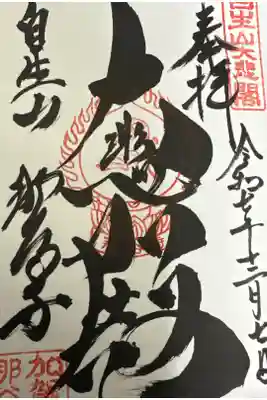 自生山大悲閣
奉拝
令和七年十二月七日
大悲閣
自生山
那谷寺
加賀
那谷